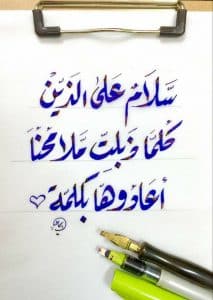 سَلَامٌ عَلَى الَّذِيْنَ
كُلَّمَا ذَبُلَتْ مَلَامِحُنَا
أَعَادُوهَا بِكَلِمَة